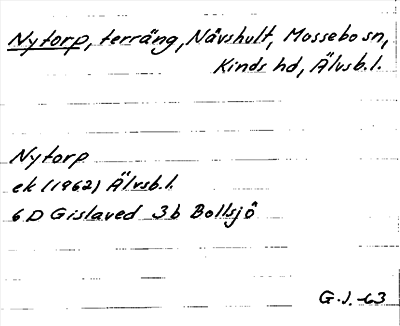 Nytorp, terräng, Nävshult, Mossebo sn,
Kinds hd, Älvsb.l.
Nytorp
ek (1962) Älvsb.l.
6D Gislaved 3b Bollsjö
G.J. -63